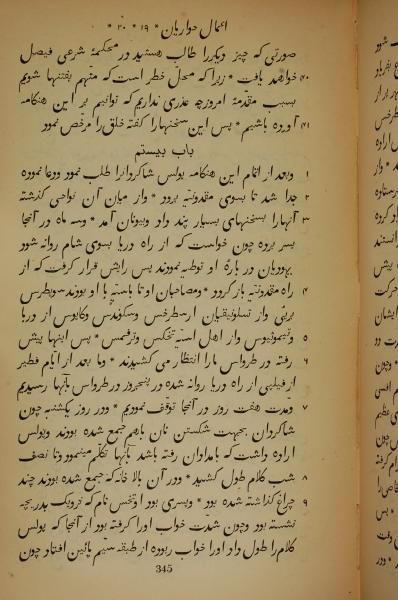 اعمال حواریان * ۱۹ * ۲۰ *
صورتی که چیز دیگررا طالب هستید در محکمهٔ شرعی فیصل
۴۰ خواهد یافت * زیرا که محل خطر است که متهم بفتنها شویم
بسبب مقدمهٔ امروز چه عذری نداریم که توانیم بر این هنکامه
۴۱ آورده باشیم * پس این سخنهارا کفته خلق را مرخص نمود
باب بیستم
۱ وبعد از اتمام این هنکامه پولس شاکردانرا طلب نمود ووداع نموده
۲ جدا شد تا بسوی مقدونیه برود * واز میان آن نواحی کذشته
۳ آنهارا بسخنهای بسیار پند داد وبیونان آمد * وسه ماه در آنجا
بسر برده چون خواست که از راه دریا بسوی شام روانه شود
یهودیان در بارهٔ او توطیه نمودند پس رایش قرار کرفت که از
۴ راه مقدونیه باز کردد * ومصاحبان او تا باسیه با او بودند سوپطرس
بریی واز تسلونیقیان ارسطرخس وسکوندس وکایوس از دربا
۵ وتیموثیوس واز اهل اسیه تخکس وترفمس * پس اینها پیش
۶ رفته در طرواس مارا انتظار می کشیدند * وما بعد از ایام فطیر
از فیلپی از راه دریا روانه شده در پنجروز در طرواس بآنها رسیدیم
۷ ومدت هفت روز در آنجا توقف نمودیم * ودر روز یکشنبه چون
شاکردان بجهت شکستن نان باهم جمع شده بودند وپولس
اراده داشت که بامدادان رفته باشد بآنها تکلم مینمود وتا نصف
۸ شب کلام طول کشید * ودر آن بالا خانه که جمع شده بودند چند
۹ چراغ کذاشته شده بود * وپسری بود اوتخس نام که نزدیک بدریچه
نشسته بود وچون شدت خواب اورا کرفته بود از آنجا که پولس
کلام را طول داد اورا خواب ربوده از طبقهٔ سیم پائین افتاد چون
345